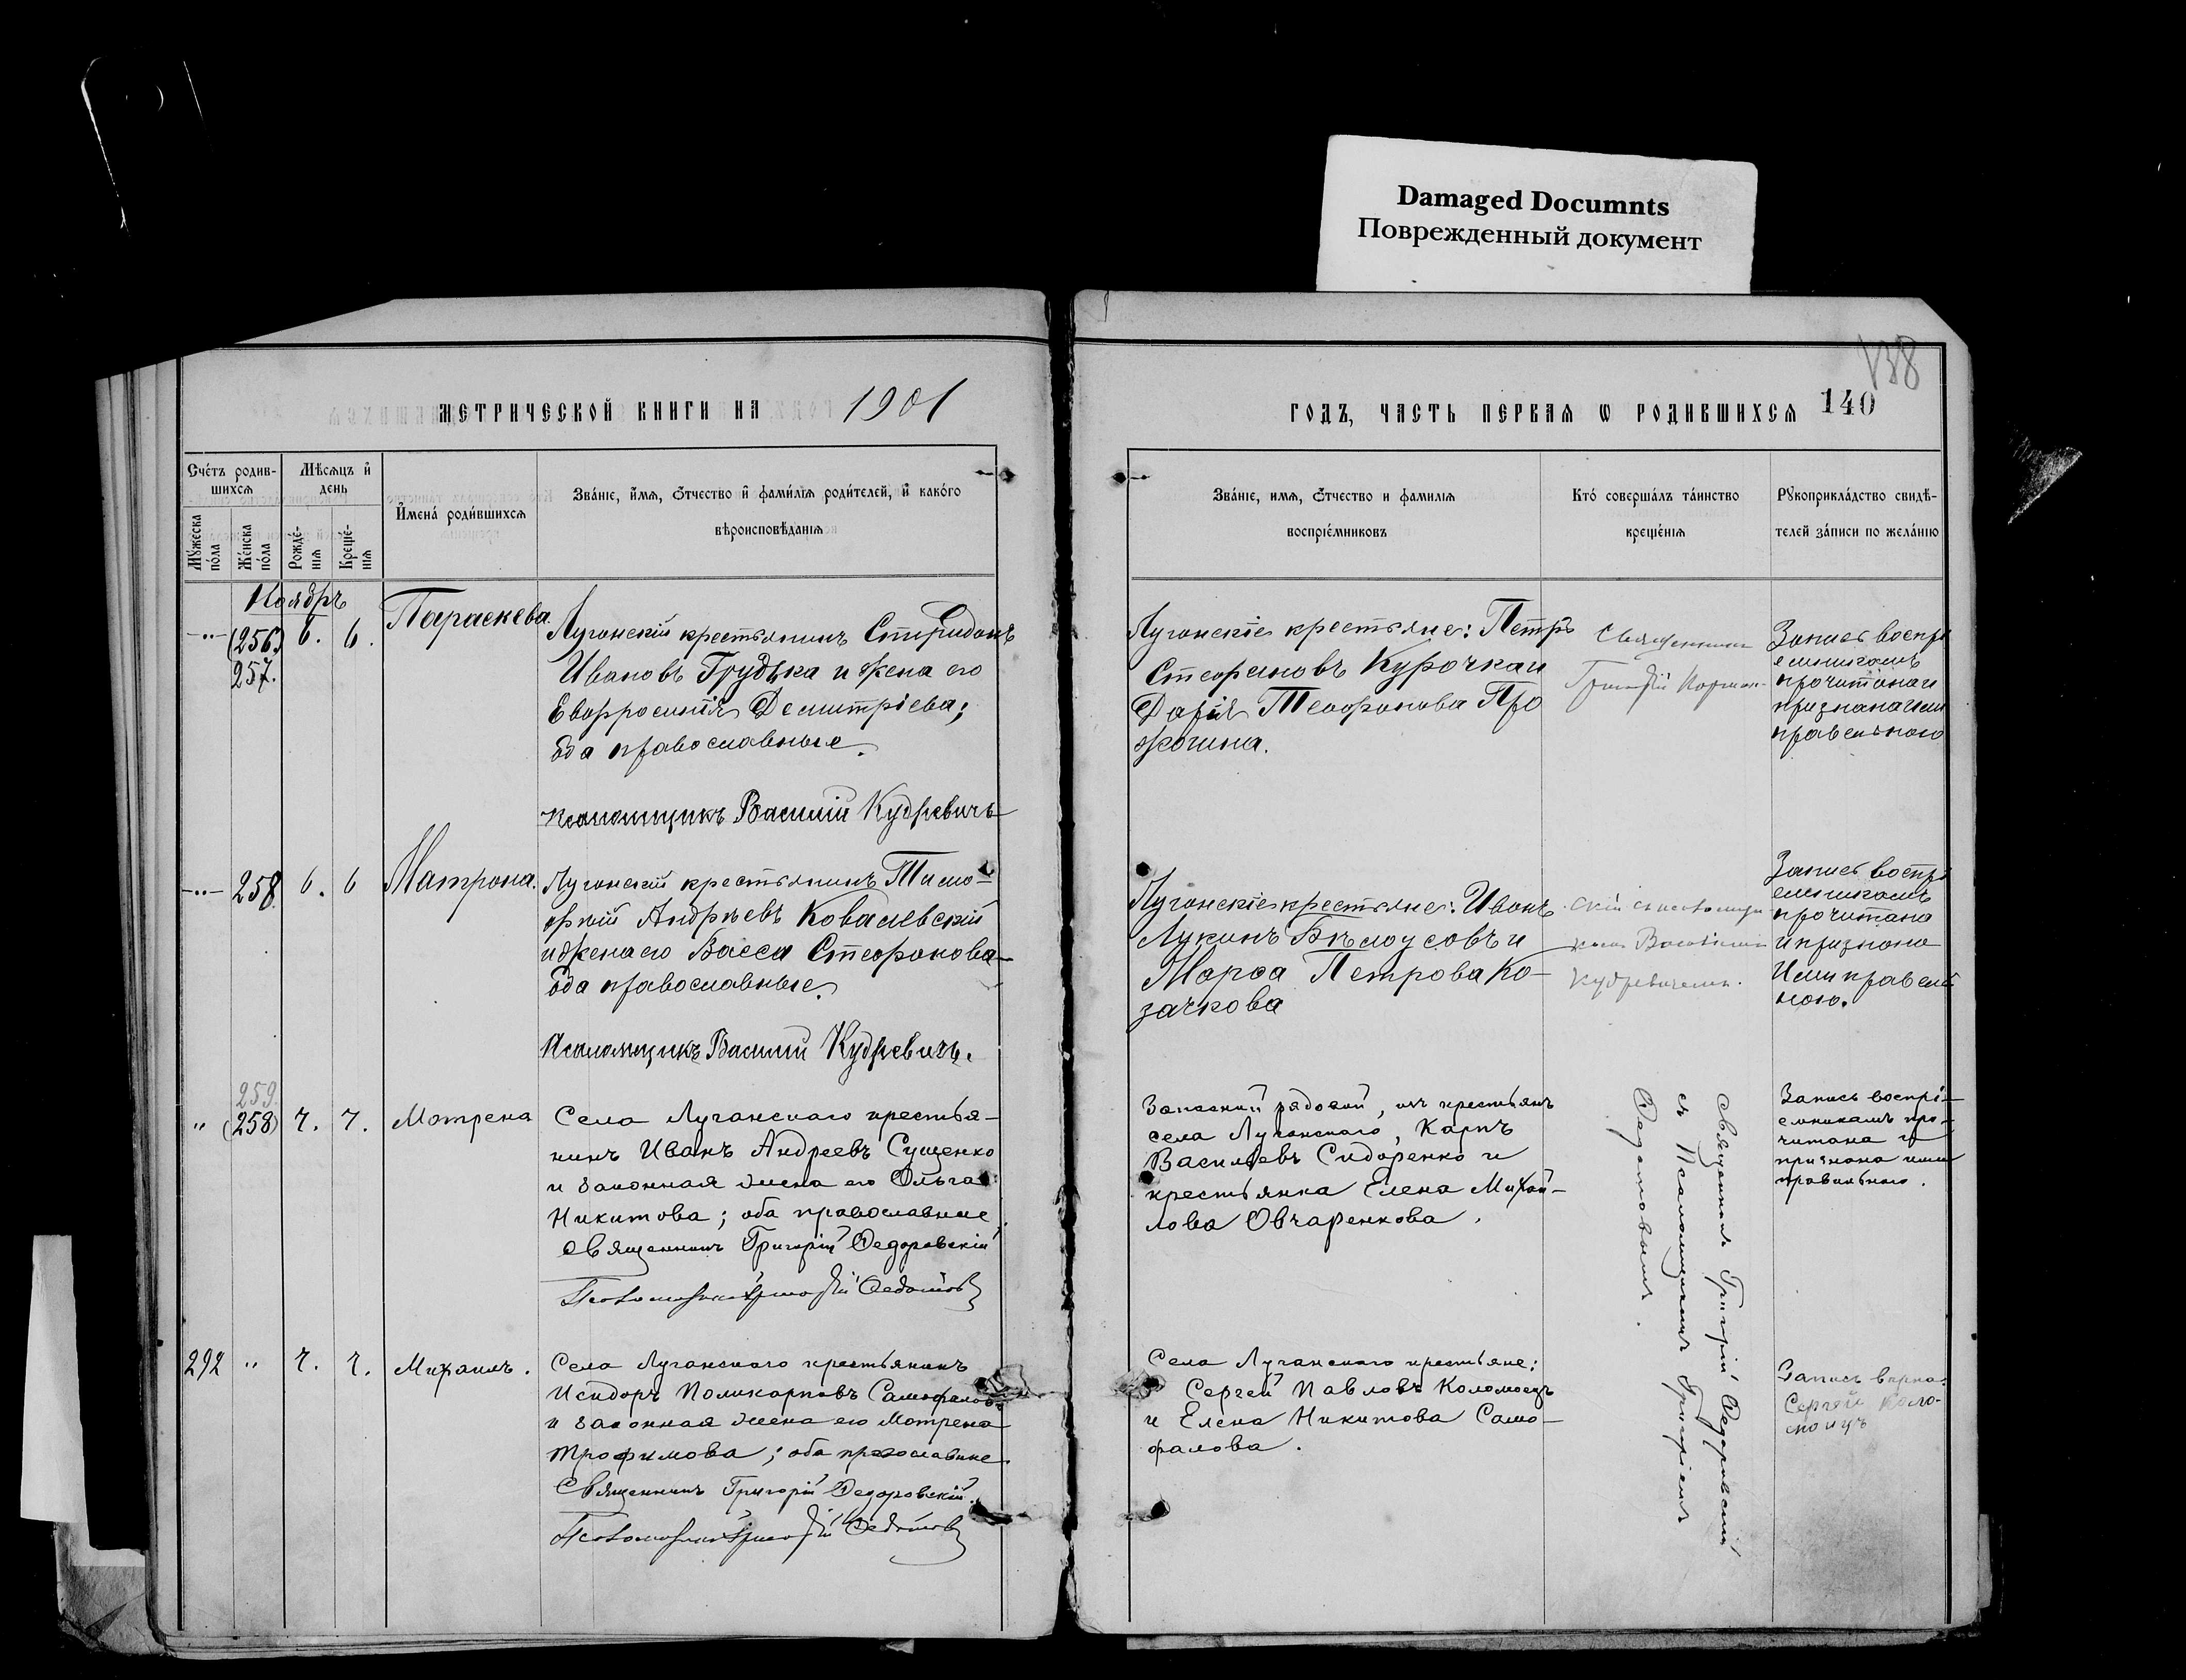 Damaged Documnts
Поврежденный документ
138
МЕТРИЧЕСКОЙ КНИГИ НА 1901
ГОДЪ, ЧАСТЬ ПЕРВАЯ Ѡ РОДИВШИХСЯ 140
Счетъ родив-
шихся
Мѣсяцъ и
день
Имена родившихся
Званіе, имя, отчество и фамилія родителей, и какого
вѣроисповѣданія
Мужеска
пола
Женска
пола
Рожде-
нія
Креще-
нія
Званіе, имя, отчество и фамилія
воспріемниковъ
Кто совершалъ таинство
крещенія
Рукоприкладство свидѣ-
телей записи по желанію
Ноябрь
(256.) 6. 6. Параскева
257.
Луганскій крестьянинъ Спиридонъ
Ивановъ Грудька и жена его
Евфросинія Димитріева;
оба православные.
Псаломщикъ Василій Кудревичъ
Луганскіе крестьяне: Петръ
Стефановъ Курочка и
Дарія Теофанова Про
жогина.
Священникъ
Григорій
Запись воспрі
емникамъ
прочитана и
признана ими
правильною
258 6. 6 Матрона.
Луганскій крестьянинъ Тимо-
фей Андреевъ Ковалевскій
и жена его Васса Стефанова
оба православные.
Псаломщикъ Василій Кудревичъ.
Луганскіе крестьяне: Иванъ
Лукинъ Бѣлоусовъ и
Марѳа Петрова Ко-
зачкова
скій съ псаломщи
комъ Василіемъ
Кудревичемъ.
Запись воспрі
емникамъ
прочитана
и признана
Ими правиль
ною.
259.
" (258) 7. 7. Мотрена
Села Луганскаго крестья-
нинъ Иванъ Андреевъ Сущенко
и законная жена его Ольга
Никитова; оба православные
Священникъ Григорій Федоровскій
Псаломщикъ Григорій Федотовъ
Запасной рядовой, изъ крестьянъ
села Луганскаго, Карпъ
Васильевъ Сидоренко и
крестьянка Елена Михай-
лова Овчаренкова.
Священникъ Григорій Федоровскій
съ Псаломщикомъ Григоріемъ
Федотовымъ.
Запись воспрі-
емникамъ про-
читана и
признана ими
правильною.
292 " 7. 7. Михаилъ.
Села Луганскаго крестьянинъ
Исидоръ Поликарповъ Самофаловъ
и законная жена его Мотрена
Трофимова; оба православные.
Священникъ Григорій Федоровскій.
Псаломщикъ Григорій Федотовъ
Села Луганскаго крестьяне:
Сергей Павловъ Коломоецъ
и Елена Никитова Само-
фалова.
Запись верна:
Сергей Коло-
моицъ